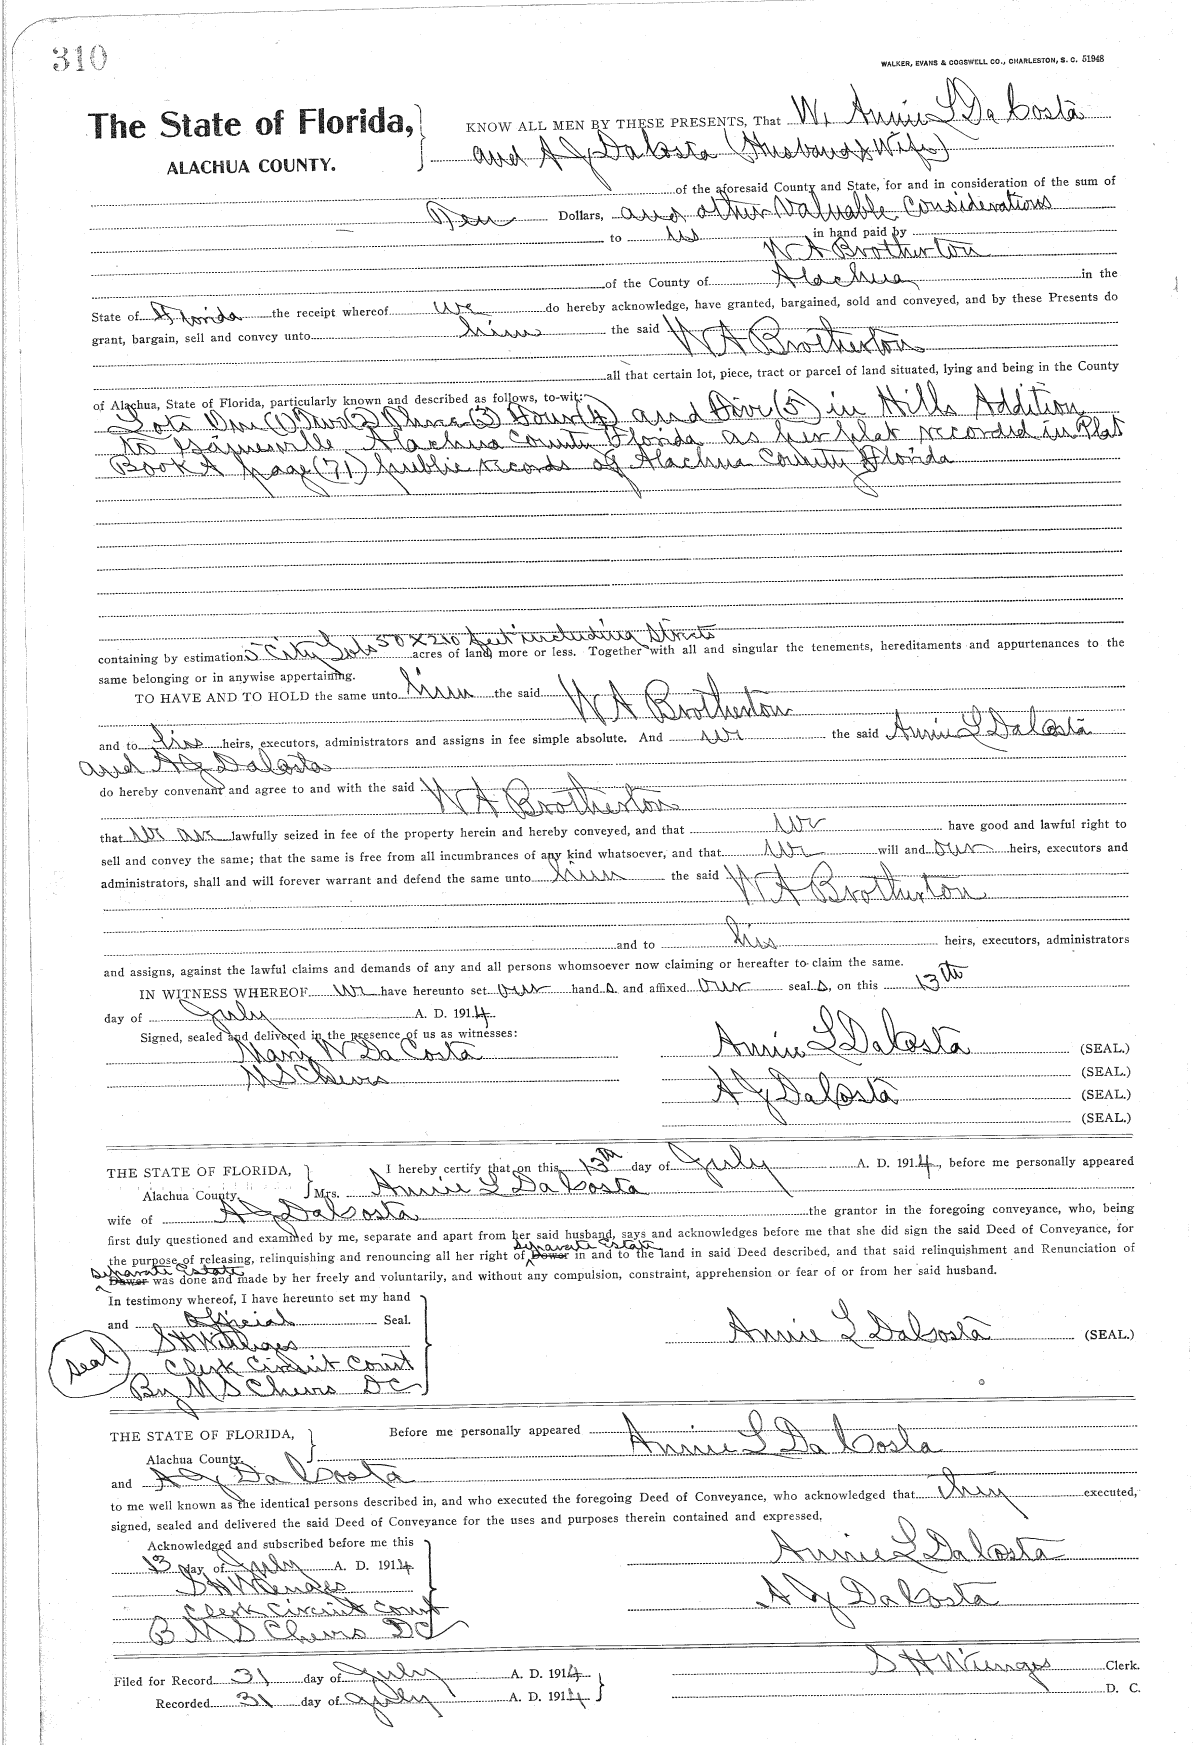 310
WALKER, EVANS & COGSWELL CO., CHARLESTON, S. C. 51948
The State of Florida,
ALACHUA COUNTY.
KNOW ALL MEN BY THESE PRESENTS, That We Annie L DaCosta
and A J DaCosta (Husband & Wife)
of the aforesaid County and State, for and in consideration of the sum of
Ten Dollars, and other Valuable Considerations
to us in hand paid by
W A Brotherton
of the County of Alachua in the
State of Florida the receipt whereof we do hereby acknowledge, have granted, bargained, sold and conveyed, and by these Presents do
grant, bargain, sell and convey unto him the said W A Brotherton
all that certain lot, piece, tract or parcel of land situated, lying and being in the County
of Alachua, State of Florida, particularly known and described as follows, to-wit:
Lots One (1) Two (2) Three (3) Four (4) and Five (5) in Hills Addition
to Gainesville Alachua County Florida as per plat recorded in Plat
Book A page (71) public records of Alachua County Florida
containing by estimation 5 City Lots 50 X 210 feet including Streets acres of land, more or less. Together with all and singular the tenements, hereditaments and appurtenances to the
same belonging or in anywise appertaining.
TO HAVE AND TO HOLD the same unto him the said W A Brotherton
and to his heirs, executors, administrators and assigns in fee simple absolute. And we the said Annie L DaCosta
and A J DaCosta
do hereby convenant and agree to and with the said W A Brotherton
that we are lawfully seized in fee of the property herein and hereby conveyed, and that we have good and lawful right to
sell and convey the same; that the same is free from all incumbrances of any kind whatsoever, and that we will and our heirs, executors and
administrators, shall and will forever warrant and defend the same unto him the said W A Brotherton
and to his heirs, executors, administrators
and assigns, against the lawful claims and demands of any and all persons whomsoever now claiming or hereafter to claim the same.
IN WITNESS WHEREOF We have hereunto set our hand s and affixed our seal s, on this 13th
day of July A. D. 1914.
Signed, sealed and delivered in the presence of us as witnesses:
Mary W DaCosta
M S Cheves
Annie L DaCosta (SEAL.)
(SEAL.)
A J DaCosta (SEAL.)
(SEAL.)
THE STATE OF FLORIDA,
Alachua County.
I hereby certify that on this 13th day of July A. D. 1914, before me personally appeared
Mrs. Annie L DaCosta
wife of A J DaCosta the grantor in the foregoing conveyance, who, being
first duly questioned and examined by me, separate and apart from her said husband, says and acknowledges before me that she did sign the said Deed of Conveyance, for
the purpose of releasing, relinquishing and renouncing all her right of Dower Separate Estate in and to the land in said Deed described, and that said relinquishment and Renunciation of
Dower Separate Estate was done and made by her freely and voluntarily, and without any compulsion, constraint, apprehension or fear of or from her said husband.
In testimony whereof, I have hereunto set my hand
and official Seal.
S H Wienges
Seal
Clerk Circuit Court
By M S Cheves D C
Annie L DaCosta (SEAL.)
THE STATE OF FLORIDA,
Alachua County.
Before me personally appeared Annie L DaCosta
and A J DaCosta
to me well known as the identical persons described in, and who executed the foregoing Deed of Conveyance, who acknowledged that they executed,
signed, sealed and delivered the said Deed of Conveyance for the uses and purposes therein contained and expressed,
Acknowledged and subscribed before me this
13 day of July A. D. 1914
S H Wienges
Clerk Circuit Court
B M S Cheves D C
Annie L DaCosta
A J DaCosta
Filed for Record 31 day of July A. D. 1914
Recorded 31 day of July A. D. 1914
S H Wienges Clerk.
D. C.